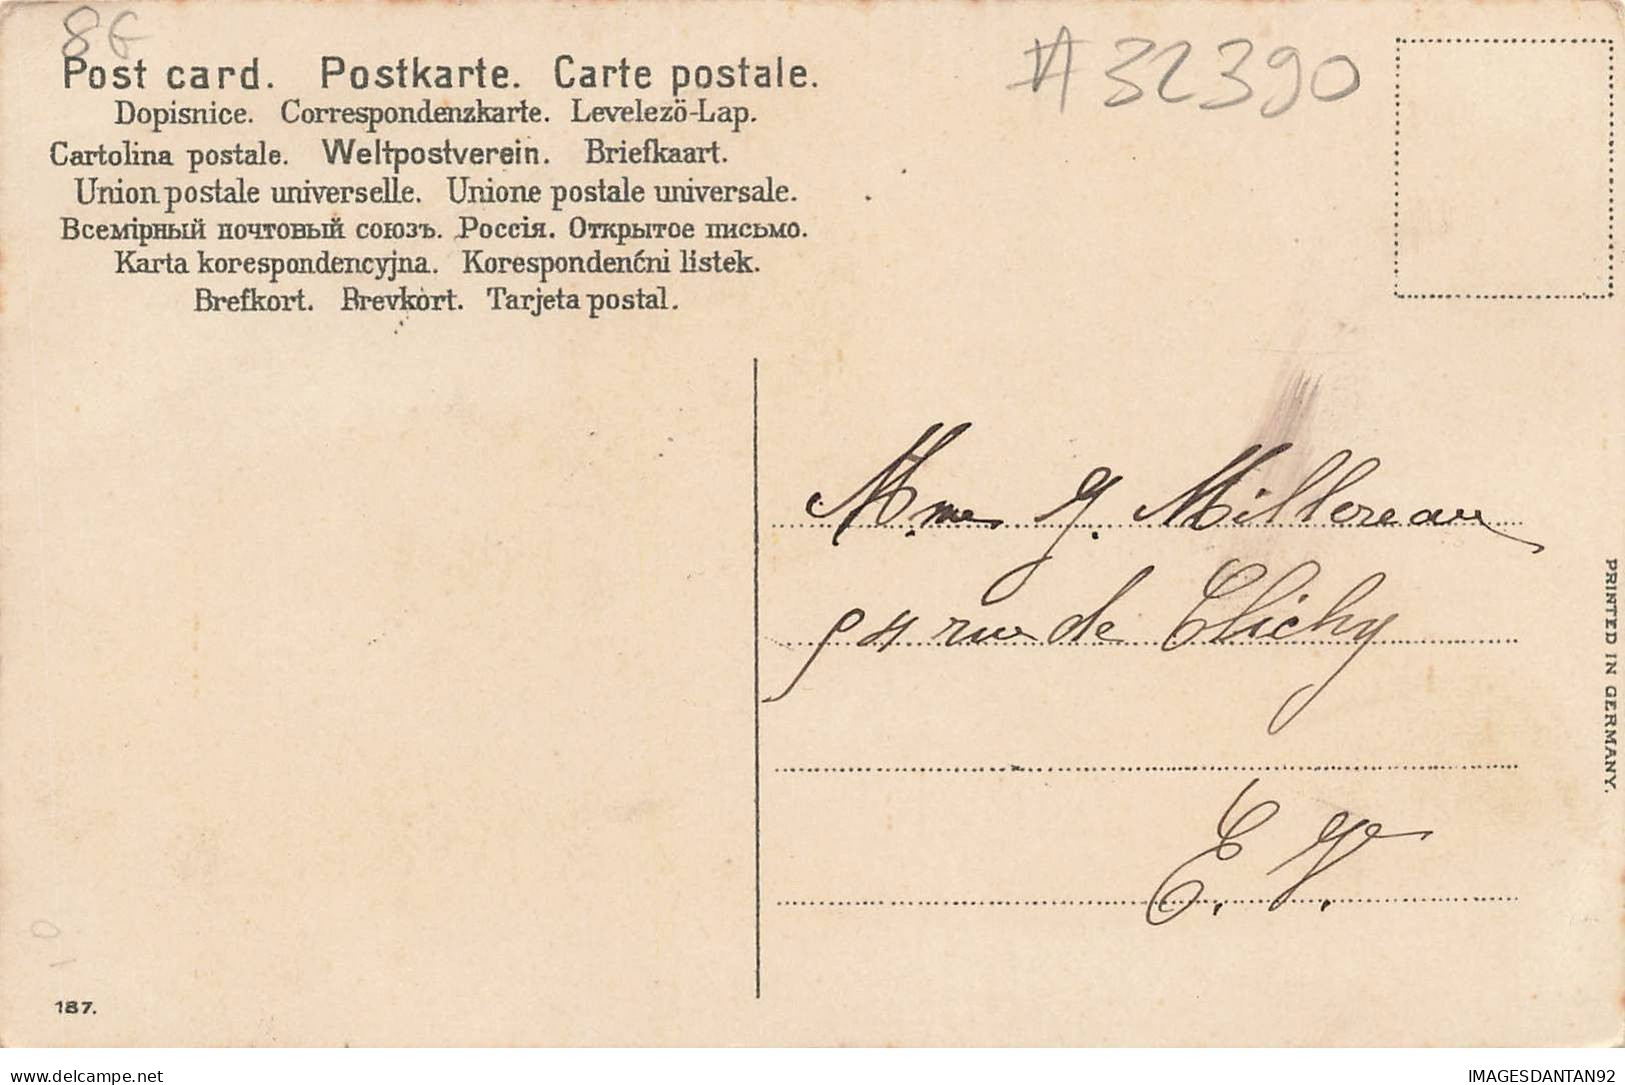 8€
#32390
Post card. Postkarte. Carte postale.
Dopisnice. Correspondenzkarte. Levelezö-Lap.
Cartolina postale. Weltpostverein. Briefkaart.
Union postale universelle. Unione postale universale.
Всемірный почтовый союзъ. Россія. Открытое письмо.
Karta korespondencyjna. Korespondenćni listek.
Brefkort. Brevkort. Tarjeta postal.
Mme G. Millereau
94 rue de Clichy
E. V.
PRINTED IN GERMANY.
187.
delcampe.net
IMAGESDANTAN92